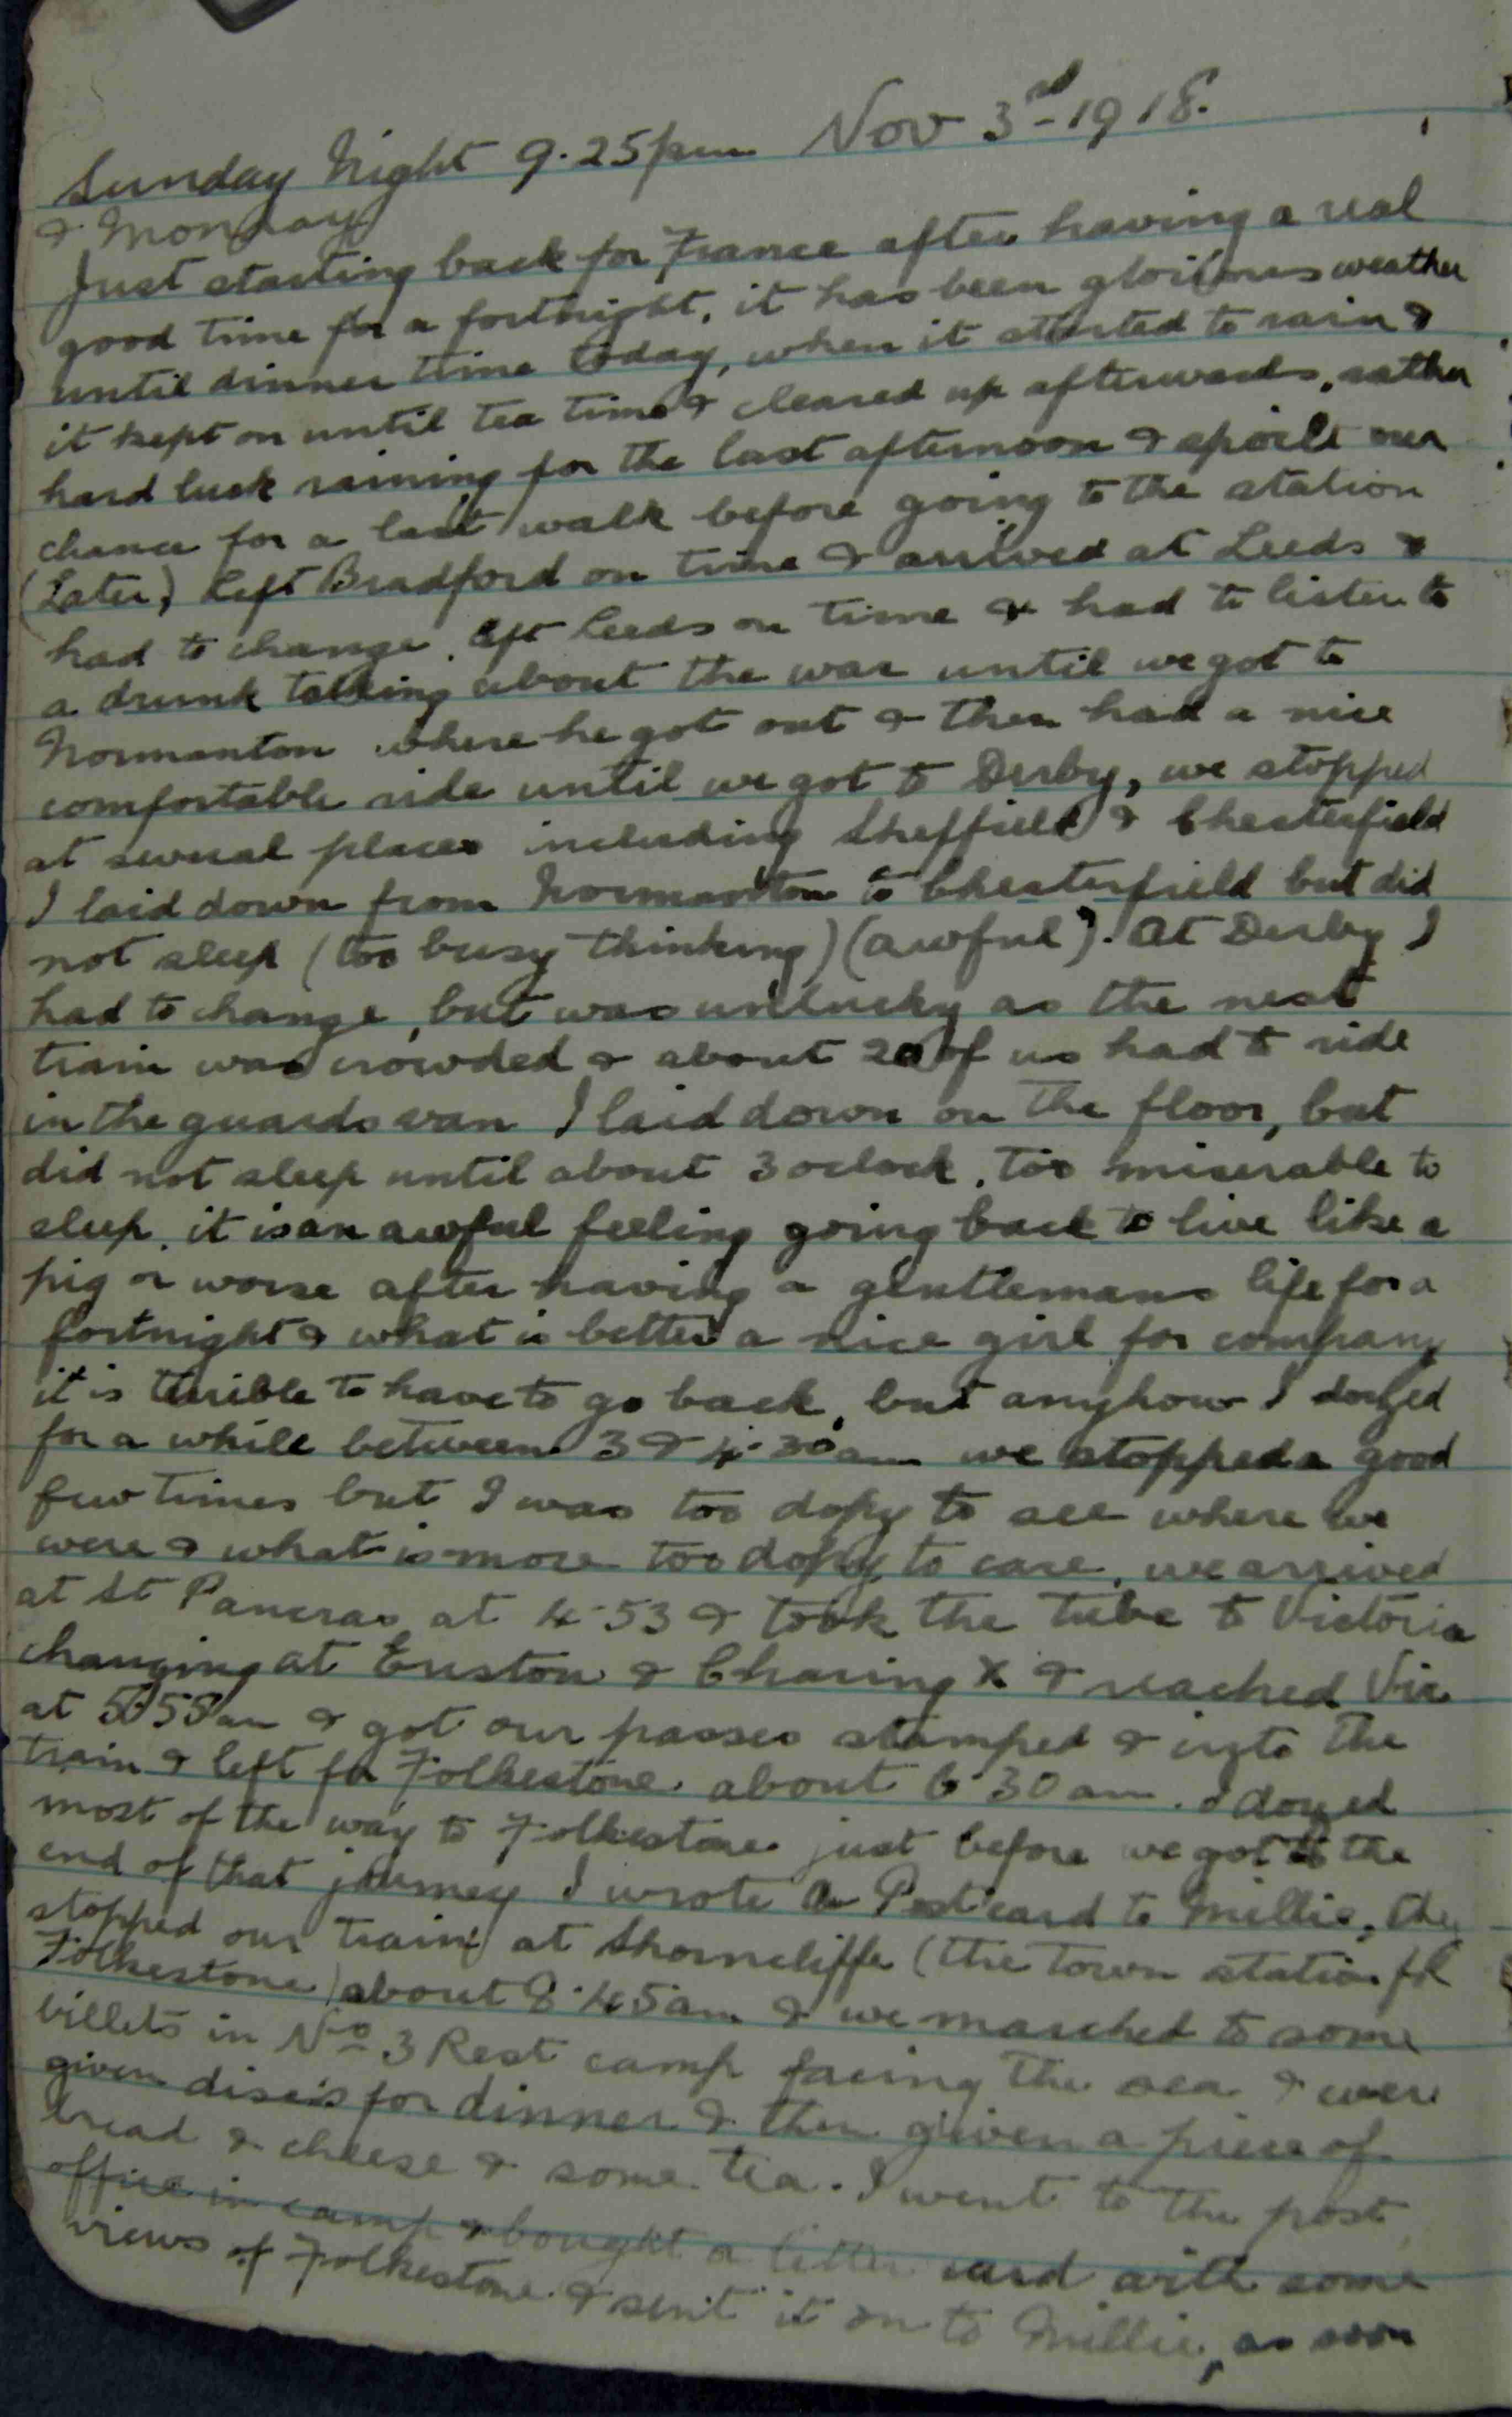 Sunday Night 9.25pm Nov 3rd - 1918.
& Monday
Just starting back for France after having a real
good time for a fortnight, it has been glorious weather
until dinner time today, when it started to rain &
it kept on until tea time & cleared up afterwards, rather
hard luck raining for the last afternoon & spoilt our
chance for a last walk before going to the station
(Later) Left Bradford on time & arrived at Leeds &
had to change. left Leeds on time & had to listen to
a drunk talking about the war until we got to
Normanton where he got out & then had a nice
comfortable ride until we got to Derby, we stopped
at several places including Sheffield & Chesterfield
I laid down from Normanton to Chesterfield but did
not sleep (too busy thinking) (awful). At Derby I
had to change, but was unlucky as the next
train was crowded & about 20 of us had to ride
in the guards van I laid down on the floor, but
did not sleep until about 3 oclock, too miserable to
sleep. it is an awful feeling going back to live like a
pig or worse after having a gentlemans life for a
fortnight & what is better a nice girl for company
it is terrible to have to go back, but anyhow I dozed
for a while between 3 & 4.30am we stopped a good
few times but I was too dopy to see where we
were & what is more too dopy to care, we arrived
at St Pancras at 4.53 & took the tube to Victoria
changing at Euston & Charing X & reached Vic
at 5.58am & got our passes stamped & into the
train & left for Folkestone about 6.30am. I dozed
most of the way to Folkestone just before we got to the
end of that journey I wrote a Postcard to Millie, they
stopped our train at Shorncliffe (the town station for
Folkestone) about 8.45am & we marched to some
billets in No 3 Rest camp facing the sea & were
given discs for dinner & then given a piece of
bread & cheese & some tea. I went to the post
office in camp & bought a letter card with some
views of Folkestone & sent it on to Millie, as soon